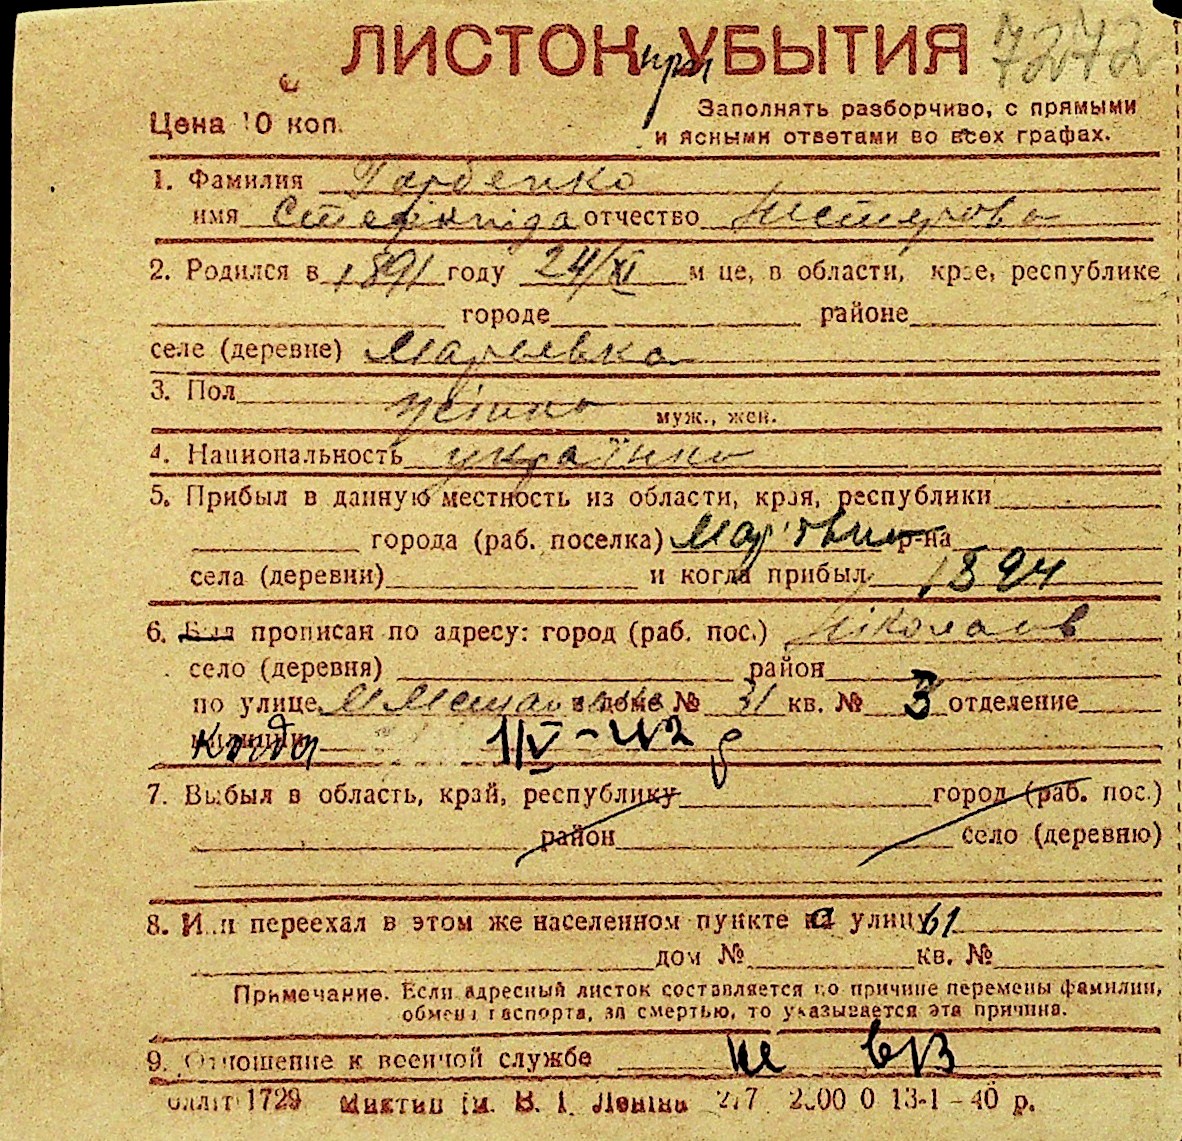 ЛИСТОК УБЫТИЯ 7272
при
Цена 10 коп.
Заполнять разборчиво, с прямыми
и ясными ответами во всех графах.
1. Фамилия Гарбенко
имя Степанида отчество Нестерова
2. Родился в 1891 году 24/XI м-це, в области, крае, республике
городе районе
селе (деревне)
3. Пол жінка муж., жен.
4. Национальность українка
5. Прибыл в данную местность из области, края, республики
города (раб. поселка) р-на
села (деревни) и когда прибыл 1894
6. Был прописан по адресу: город (раб. пос.) Ніколаєв
село (деревня) район
по улице в доме № 31 кв. № 3 отделение
милиции Когда 1/V-42
7. Выбыл в область, край, республику город (раб. пос.)
район село (деревню)
8. Или переехал в этом же населенном пункте с улицы
дом № кв. №
Примечание. Если адресный листок составляется по причине перемены фамилии,
обмена паспорта, за смертью, то указывается эта причина.
9. Отношение к военной службе не в/з
1729 В. І. Леніна 13-1-40 р.